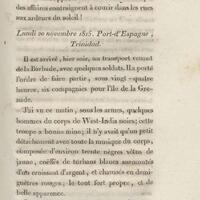 des affaires contraignent à courir dans les rues
aux ardeurs du soleil!
Lundi 20 novembre 1815. Port-d'Espagne,
Trinidad.
Il est arrivé, hier soir, un transport venant
de la Barbade, avec quelques soldats. Il a porté
l'ordre de faire partir, sous vingt-quatre
heures, six compagnies pour l'île de la Gre-
nade.
J'ai vu ce matin, sous les armes, quelques
hommes du corps de West-India noirs; cette
troupe a bonne mine; il n'y avait qu'un petit
détachement avec toute la musique du corps,
composée d'environ trente nègres vêtus de
jaune, coiffés de turbans blancs surmontés
d'un croissant d'argent, et chaussés en demi-
guêtres rouges; le tout fort propre, et de
belle apparence.